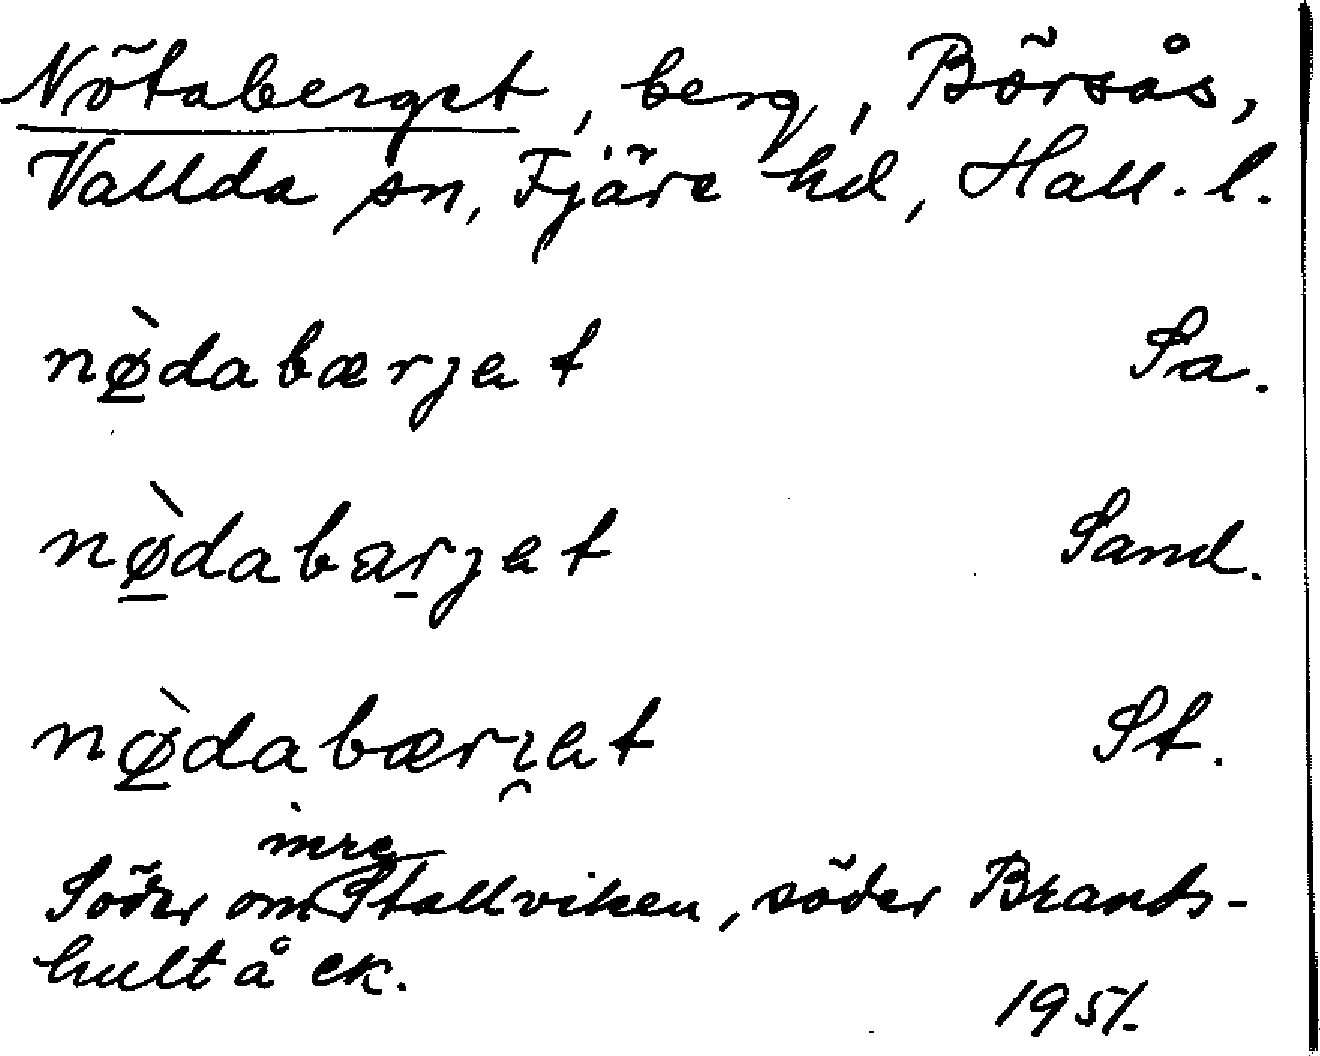 Nötaberget, berg, Börsås,
Vallda sn, Fjäre hd, Hall. l.
nø̱̀dabærjet Sa.
nø̱̀dabar̠jet Sand.
nø̱̀dabæri̯et St.
inre
Söder om Stallviken, söder Brants-
hult å ek.
1951.